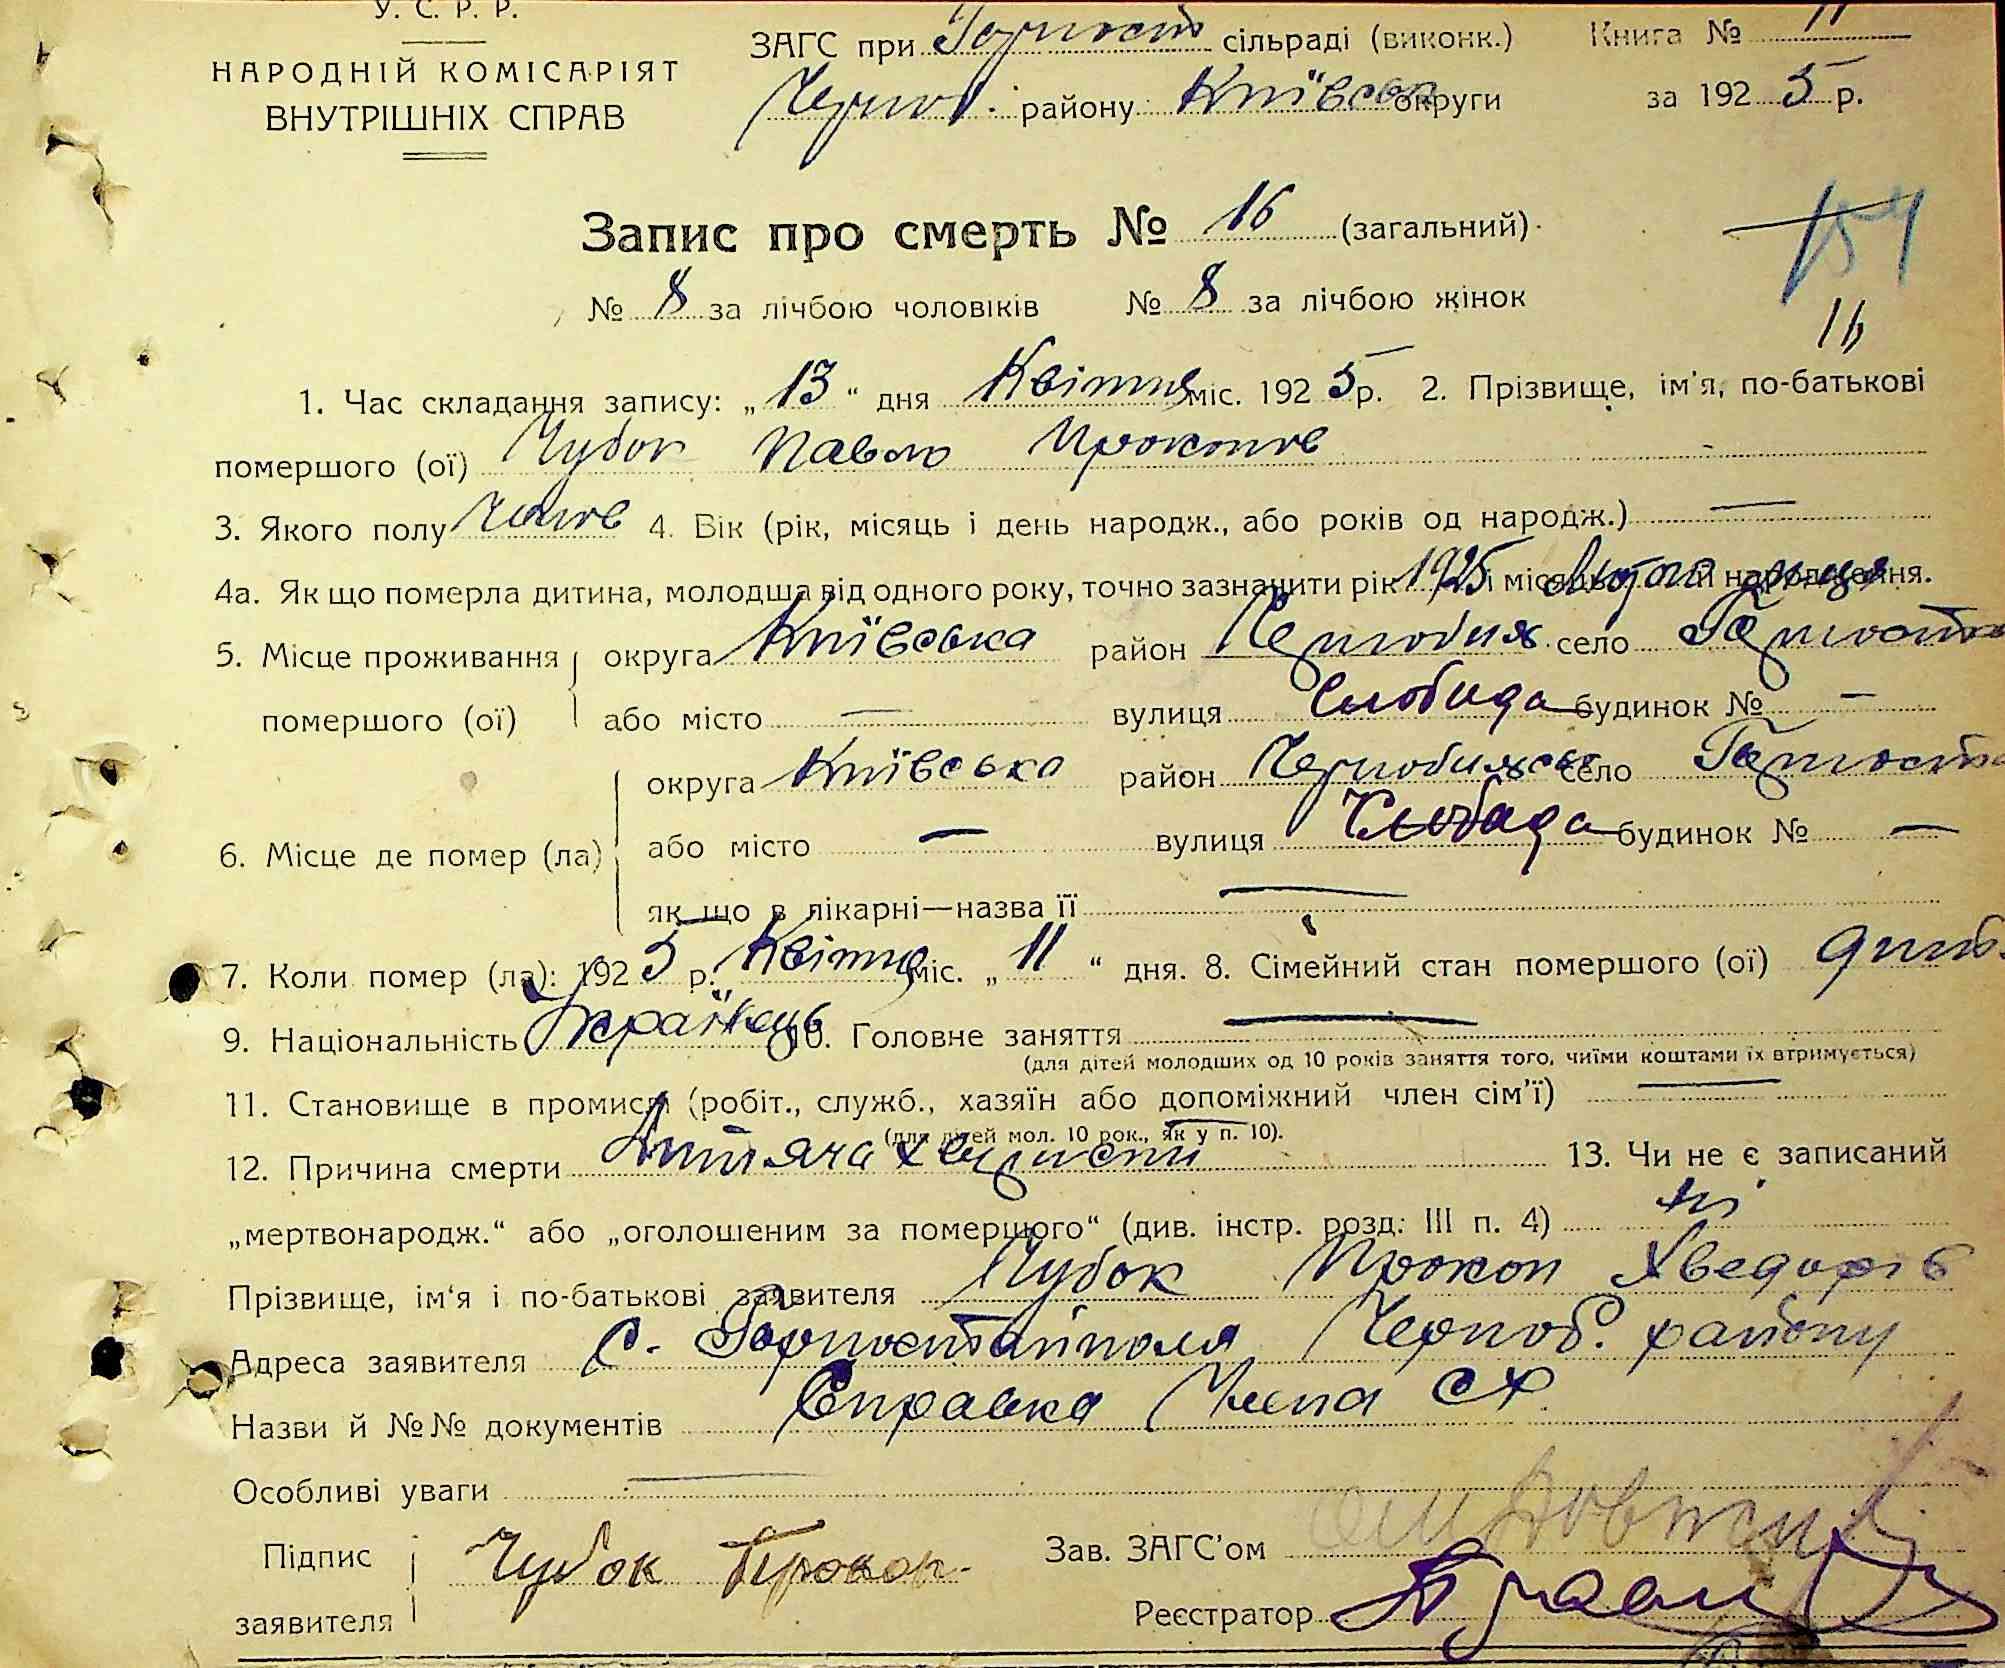 У. С. Р. Р.
НАРОДНІЙ КОМІСАРІЯТ
ВНУТРІШНІХ СПРАВ
ЗАГС при Горност сільраді (виконк.) Книга № 11
Чернов. району Київськ округи за 1925 р.
Запис про смерть № 16 (загальний)
154
№ 8 за лічбою чоловіків № 8 за лічбою жінок
16
1. Час складання запису: „13“ дня Квітня міс. 1925 р. 2. Прізвище, ім'я, по-батькові
помершого (ої) Чубок Павло Прокопів
3. Якого полу Чолов 4. Вік (рік, місяць і день народж., або років од народж.) —
4а. Як що померла дитина, молодша від одного року, точно зазначити рік 1925 і місяць Лютого м-ця її народження.
5. Місце проживання округа Київська район Чернобил. село Горноста
помершого (ої) або місто — вулиця Слобида будинок № —
округа Київська район Чернобильськ село Горноста
6. Місце де помер (ла) або місто — вулиця Слобида будинок № —
як що в лікарні—назва її —
7. Коли помер (ла): 1925 р. Квітня міс. „11“ дня. 8. Сімейний стан помершого (ої) дит.
9. Національність Українець 10. Головне заняття —
(для дітей молодших од 10 років заняття того, чиїми коштами їх втримується)
11. Становище в промислі (робіт., служб., хазяїн або допоміжний член сім'ї) —
(для дітей мол. 10 рок., як у п. 10).
12. Причина смерти Дитяча 13. Чи не є записаний
„мертвонародж.“ або „оголошеним за померщого“ (див. інстр. розд. III п. 4) ні
Прізвище, ім'я і по-батькові заявителя Чубок Прокоп Хведорів
Адреса заявителя с. Горностайполя Черноб. району
Назви й №№ документів Справка Члена СР
Особливі уваги —
Підпис заявителя Чубок Прокоп
Зав. ЗАГС'ом
Реєстратор